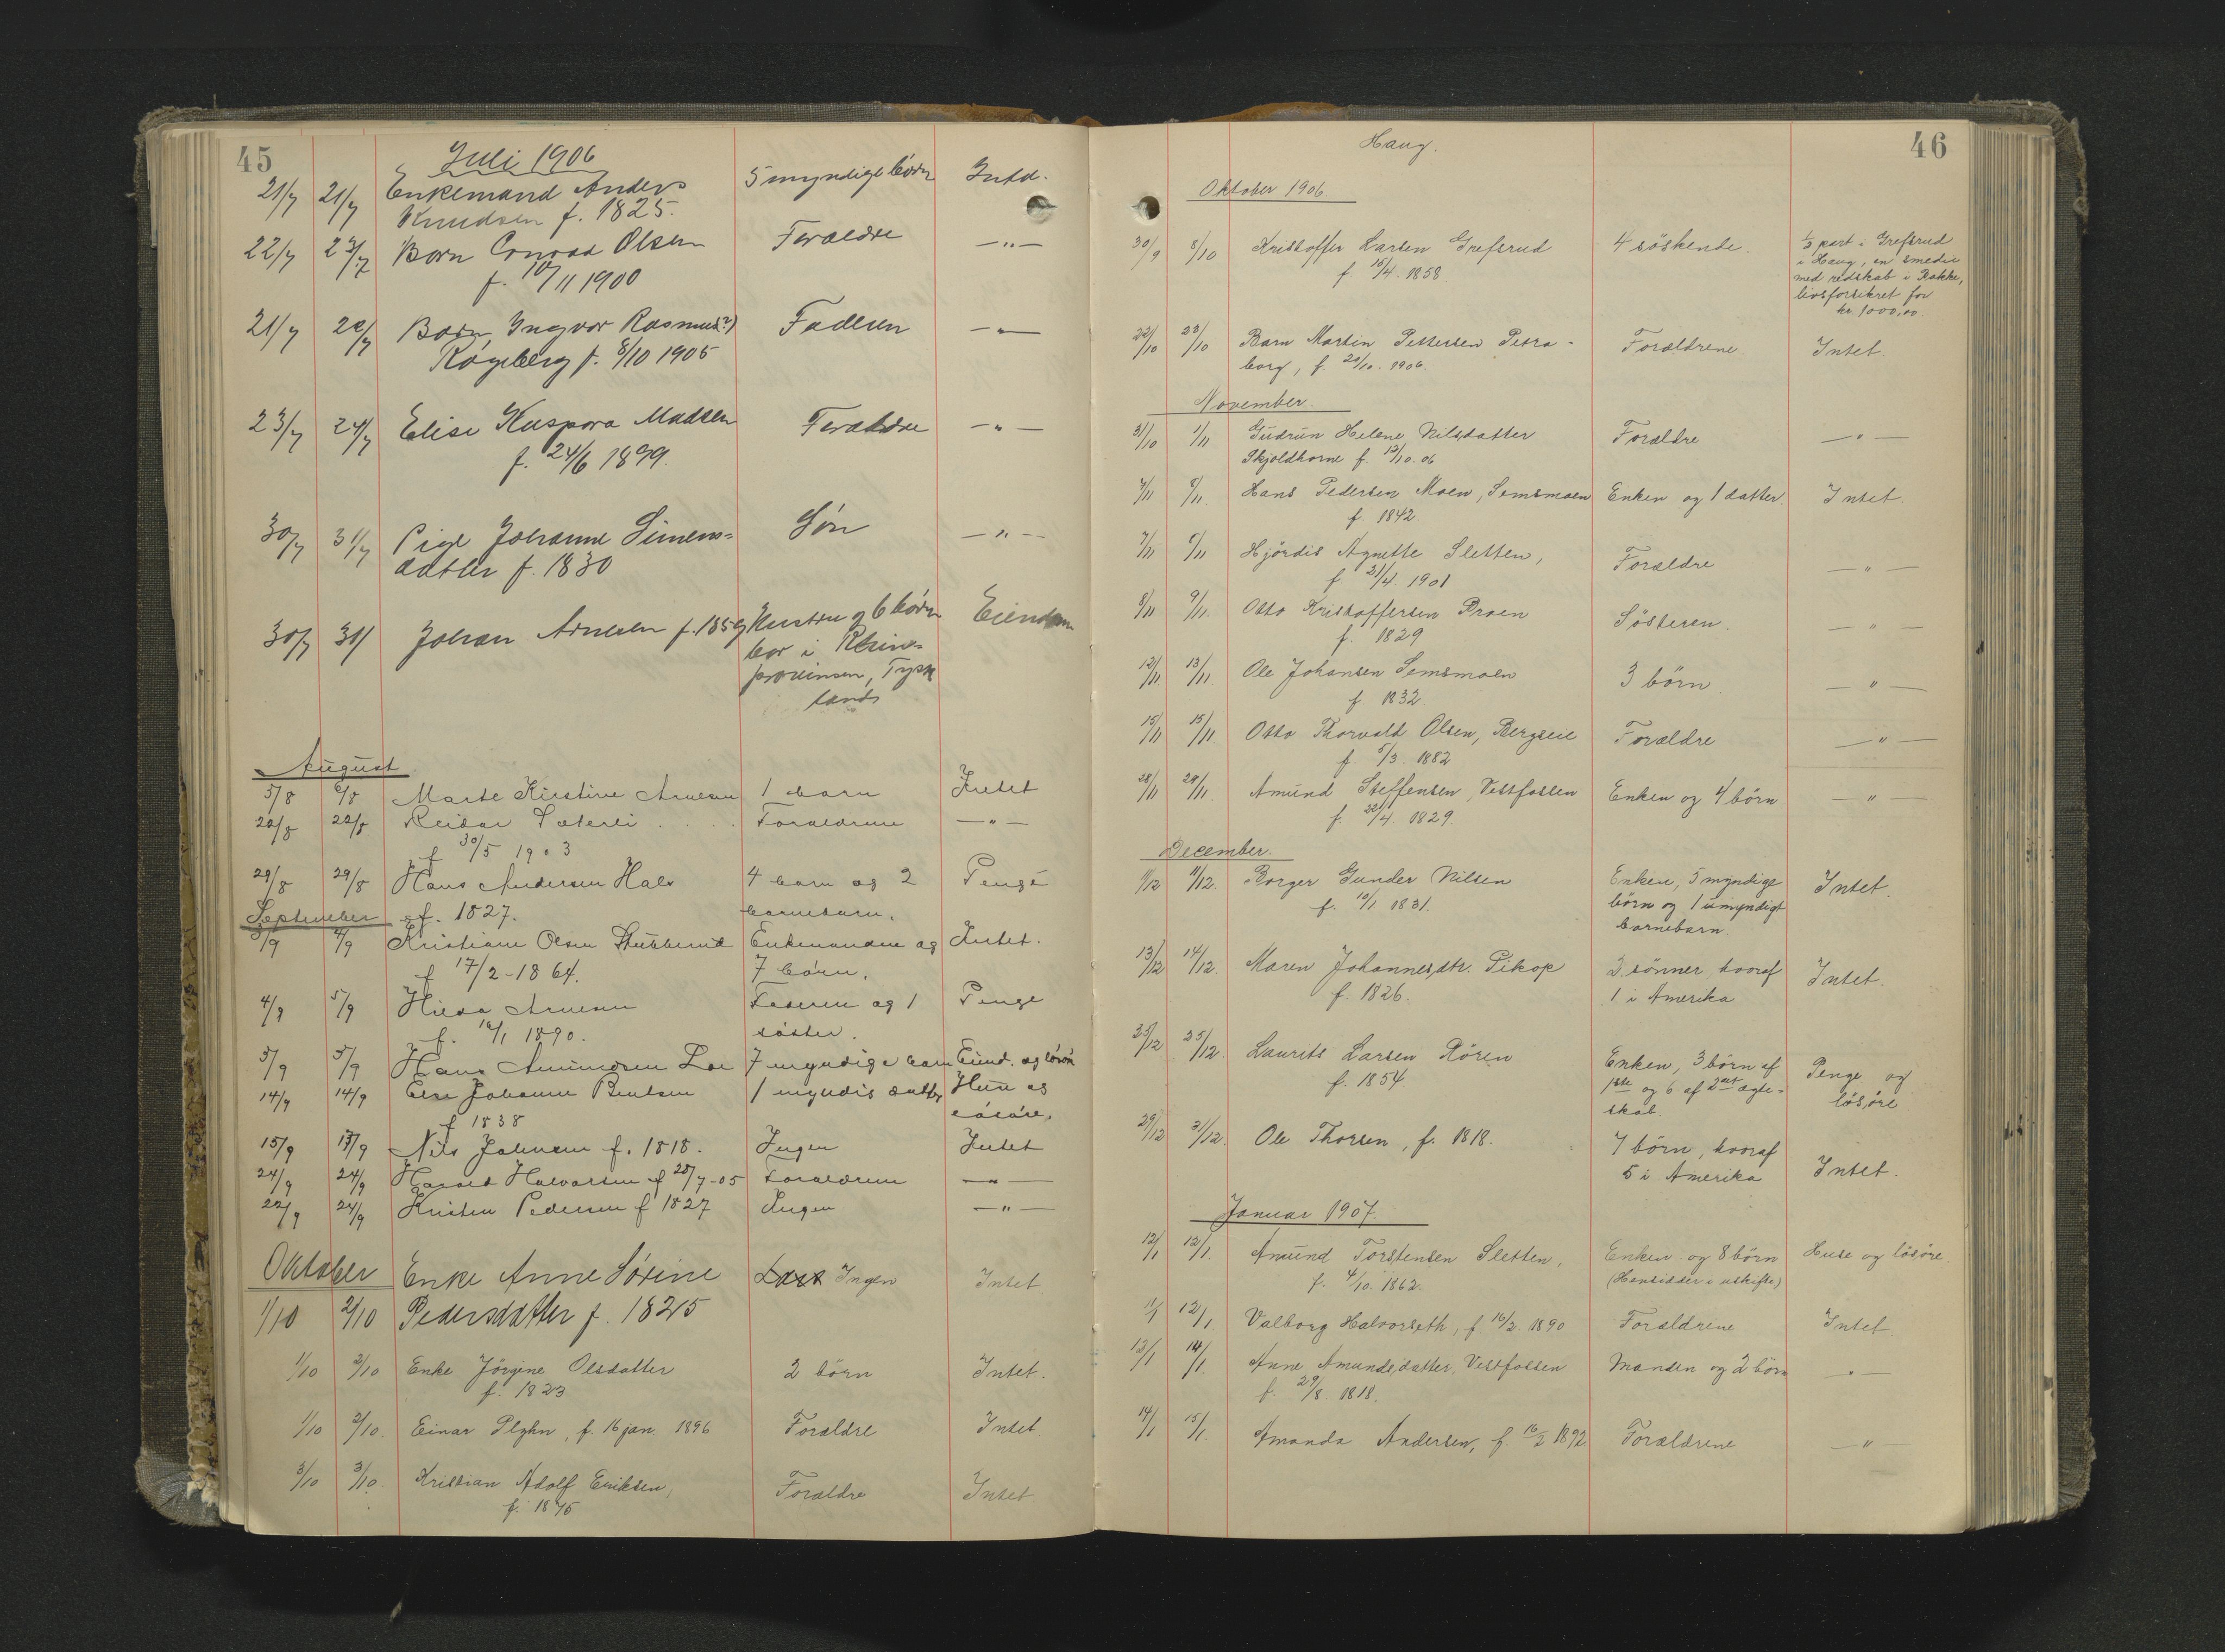 45
Juli 1906
21/7 21/7 Enkemand Anders 5 myndige børn Intet.
Knudsen f. 1825.
22/7 23/7 Barn Conrad Olsen Foreldre —"—
f. 10/11 1900
21/7 22/7 Barn Ingvar Rasmus(?) Faderen —"—
Røgeberg f. 8/10 1905
23/7 24/7 Elise Kaspara Madsen Foreldre —"—
f. 24/6 1899.
30/7 31/7 Pige Johanne Simens= Søn —"—
datter f. 1830
30/7 31/ Johan Arnesen f. 1859 Hustru og 6 børn Eiendom
bor i Rhin-
provinsen, Tysk
land
August
5/8 6/8 Marte Kirstine Arnesen 1 barn Intet
20/8 22/8 Reidar Sæterli Forældrene —"—
f 30/5 1903
29/8 29/8 Hans Andersen Hals 4 barn og 2 Penge
September f. 1827. barnebarn.
3/9 4/9 Kristiane Olsen Stubberud Enkemanden og Intet.
f 17/2-1864. 7 børn.
4/9 5/9 Hilda Arnesen Faderen og 1 Penge
f. 16/1 1890. søster.
5/9 5/9 Hans Amundsen Loe 7 myndige barn Eiend. og løsøre
14/9 14/9 Else Johanne Bentsen 1 myndig datter Hus og
f 1838 løsøre.
15/9 17/9 Nils Johnsen f. 1818. Ingen Intet
24/9 24/9 Harald Halvorsen f 28/7-05 Forældrene —"—
22/9 24/9 Kristen Pedersen f 1827 Ingen —"—
Oktober Enke Anne Sørine Ingen Intet
1/10 2/10 Pedersdatter f. 1825
1/10 2/10 Enke Jörgine Olsdatter 2 börn Intet.
f. 1823
1/10 2/10. Einar Plyhn, f. 16 jan. 1896 Forældre Intet.
3/10 3/10. Kristian Adolf Eriksen, Forældre Intet
f. 1875
46
Haug.
Oktober 1906
30/9 8/10 Kristoffer Larsen Grefsrud 4 söskende. 1/3 part i Grefsrud
f. 15/4. 1858. i Haug, en smedie
med redskab i Bakke,
livsforsikret for
kr. 1000,00.
22/10 23/10 Barn Martin Pettersen Petra- Forældrene. Intet.
borg, f. 20/10. 1906.
November.
31/10 1/11 Gudrun Helene Nilsdatter Forældre —"—
Skjoldhorne f. 13/10. 06
7/11 8/11. Hans Pedersen Moen, Semsmoen Enken og 1 datter. Intet.
f. 1842.
7/11 8/11 Hjördis Agnette Sletten, Forældre —"—
f. 21/4. 1901
8/11 9/11. Otto Kristoffersen Braen Sösteren. —"—
f. 1829
12/11 13/11. Ole Johansen Semsmoen 3 börn. —"—
f. 1832.
15/11 15/11 Otto Thorvald Olsen, Bergseie Forældre —"—
f. 5/3. 1882
28/11 29/11. Amund Steffensen, Vestfossen Enken og 4 börn —"—
f. 22/4. 1829.
December.
11/12 11/12. Borger Gunder Nilsen Enken, 5 myndige Intet.
f. 10/1 1831. börn og 1 umyndigt
barnebarn.
13/12 14/12. Maren Johannesdtr. Pikop 2 sönner, hvoraf Intet.
f. 1826. 1 i Amerika
25/12 25/12. Laurits Larsen Rören Enken, 3 börn af Penge og
f. 1854. 1ste og 6 af 2det ægte- lösöre
skab.
29/12 31/12. Ole Thorsen, f. 1818. 7 börn, hvoraf
5 i Amerika Intet.
Januar 1907.
12/1 12/1. Amund Torstensen Sletten, Enken og 8 börn Huse og lösöre.
f. 4/10. 1862. (Hensidder i uskifte)
11/1 12/1 Valborg Halvorseth, f. 16/2. 1890 Forældrene Intet.
13/1 14/1. Anne Amundsdatter, Vestfossen Manden og 2 börn —"—
f. 29/8. 1818.
14/1 15/1. Amanda Andersen, f. 16/2 1892. Forældrene —"—